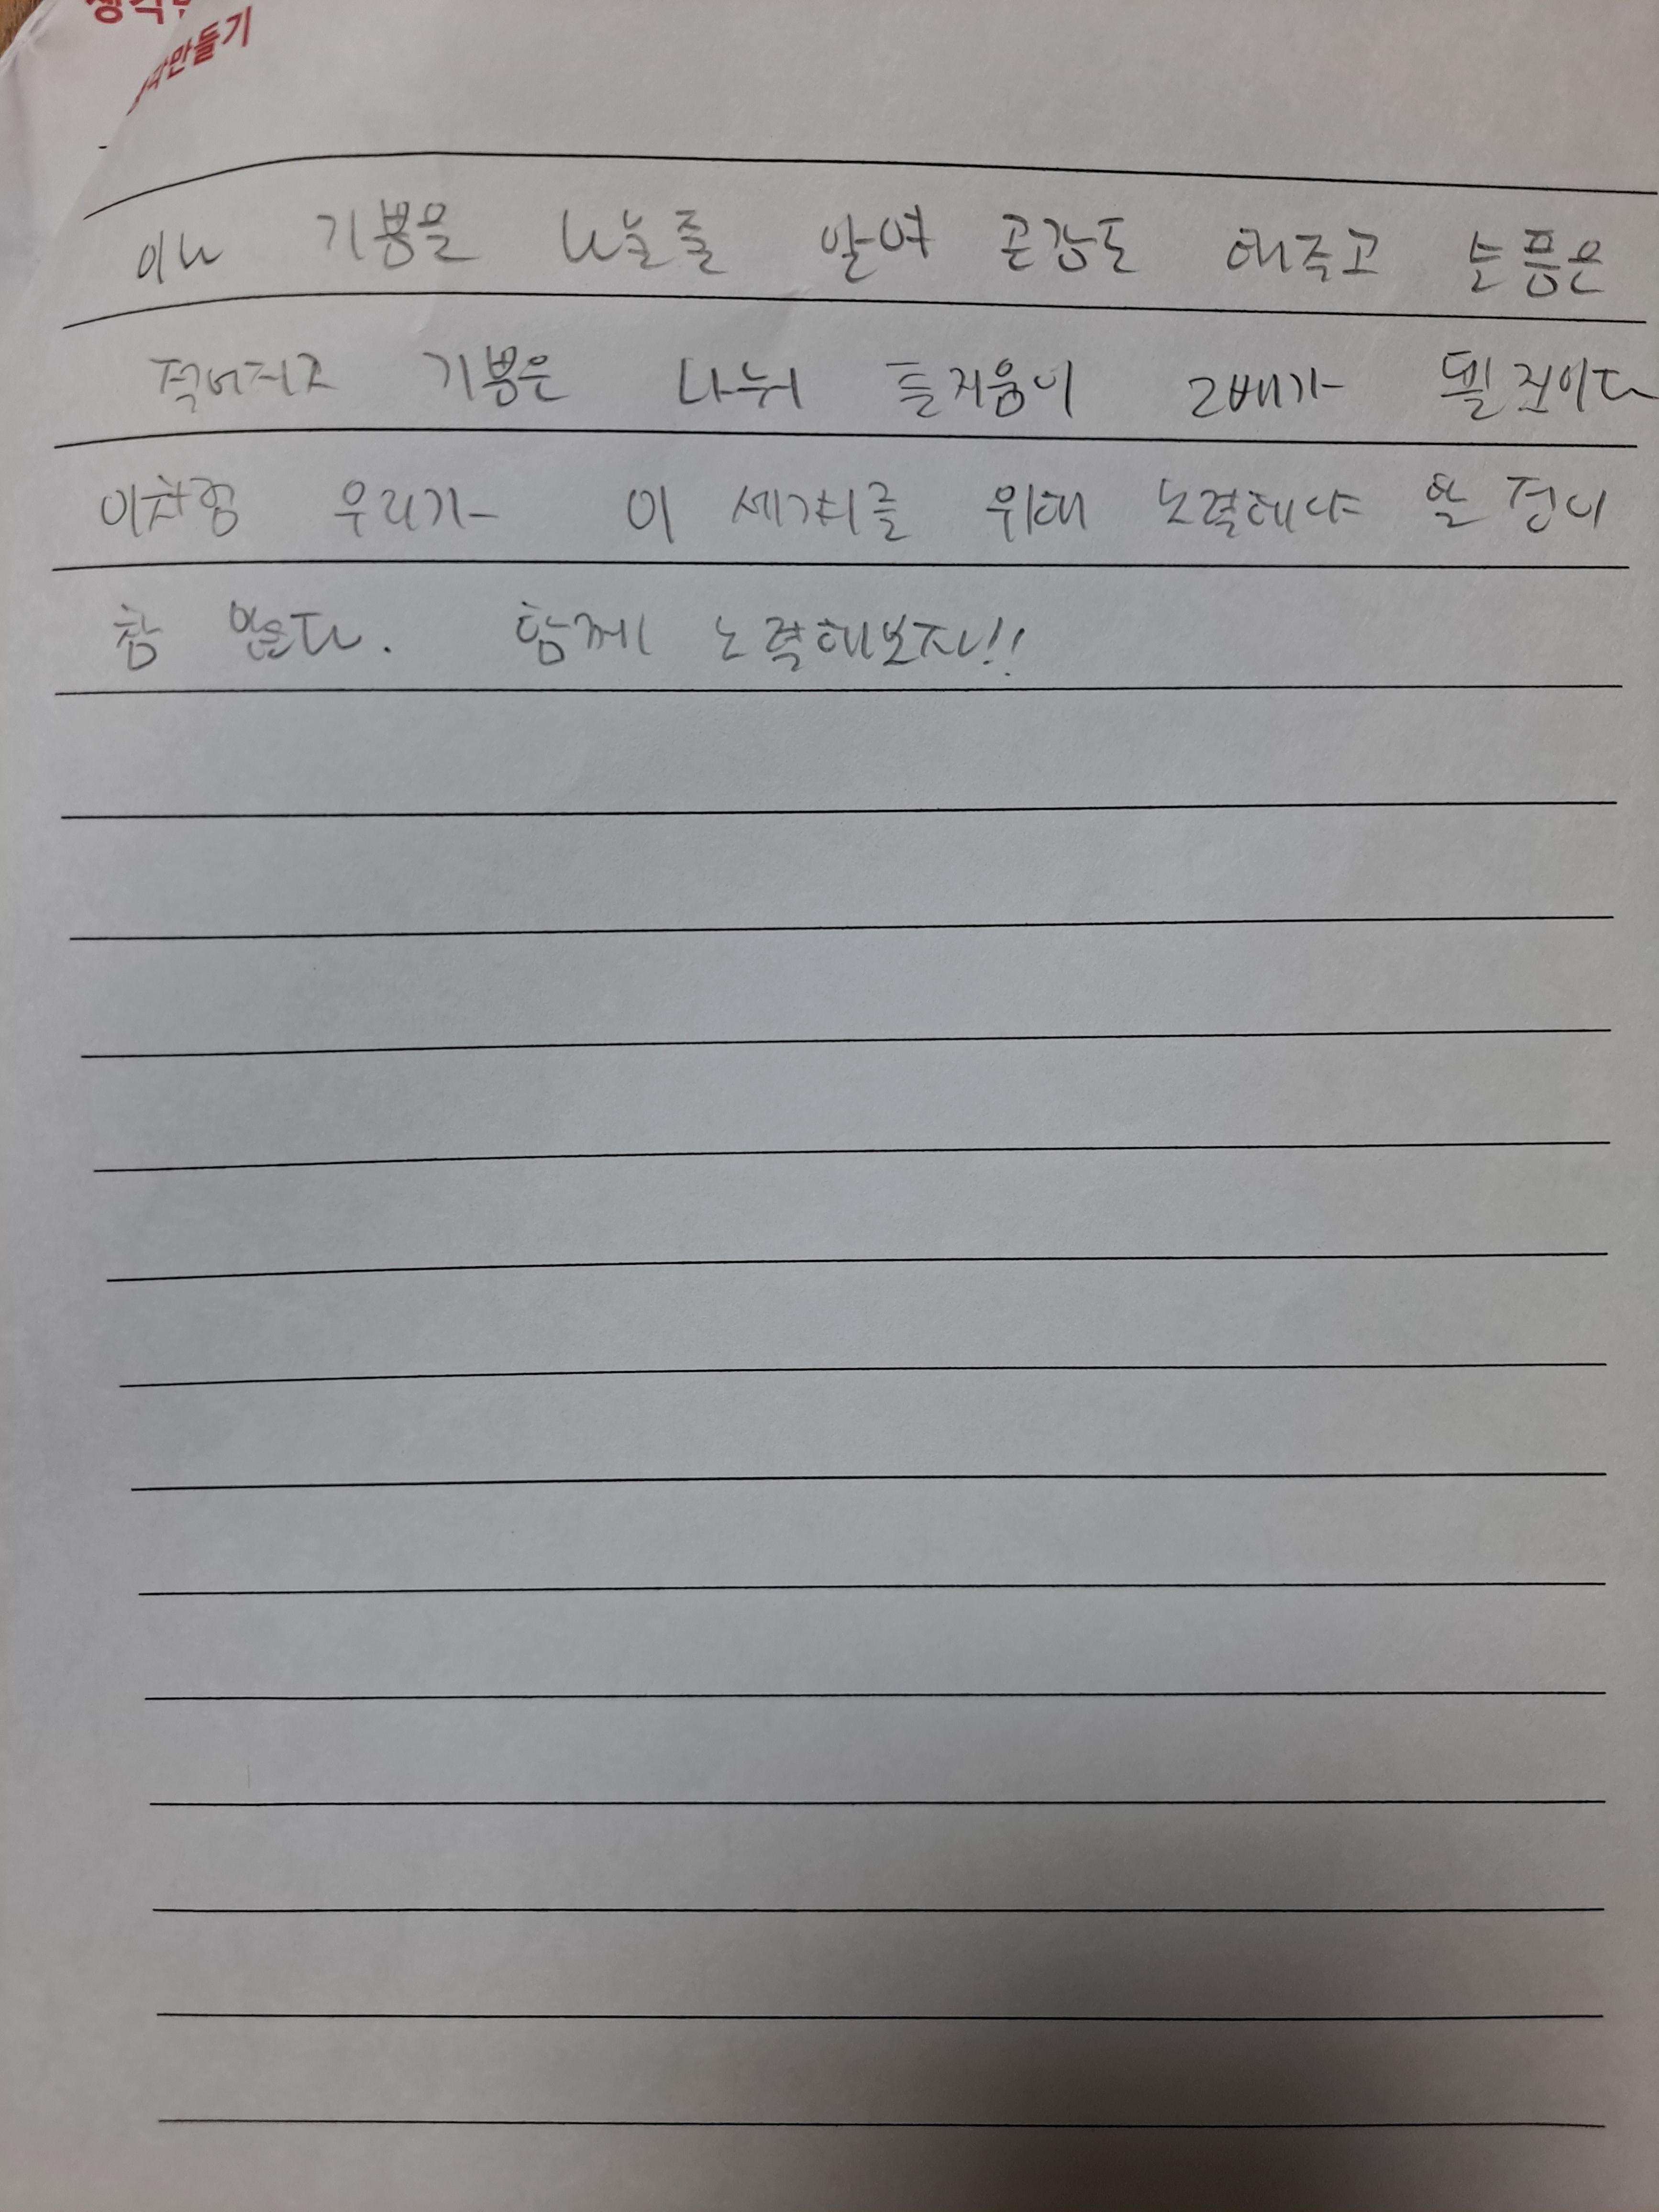 만들기
이나 기쁨을 나눌줄 알며 공감도 해주고 슬픔은
적어지고 기쁨은 나눠 즐거움이 2배가 될 것이다
이처럼 우리가 이 세계를 위해 노력해야 할 점이
참 많다. 함께 노력해보자!!